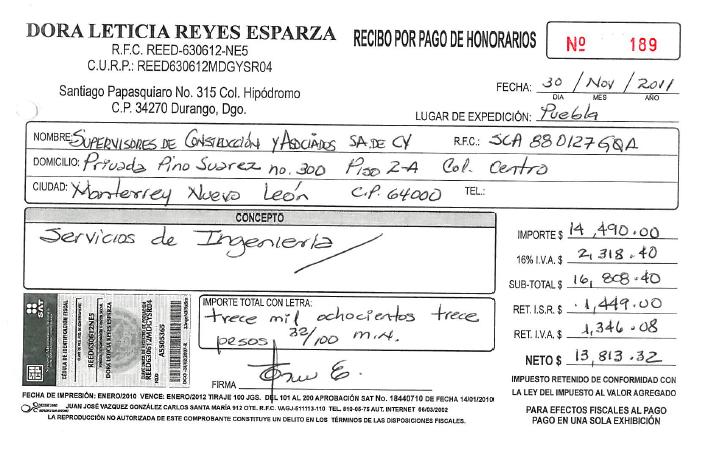 DORA LETICIA REYES ESPARZA
R.F.C. REED-630612-NE5
C.U.R.P.: REED630612MDGYSR04
Santiago Papasquiaro No. 315 Col. Hipódromo
C.P. 34270 Durango, Dgo.
RECIBO POR PAGO DE HONORARIOS
Nº 189
FECHA: 30 / Nov / 2011
DIA MES AÑO
LUGAR DE EXPEDICIÓN: Puebla
NOMBRE: SUPERVISORES DE CONSTRUCCIÓN Y ASOCIADOS SA. DE CV R.F.C.: SCA 880127GQA
DOMICILIO: Privada Pino Suarez no. 300 Piso 2-A Col. Centro
CIUDAD: Monterrey Nuevo León C.P. 64000 TEL.:
CONCEPTO
Servicios de Ingeniería
IMPORTE $ 14,490.00
16% I.V.A. $ 2,318.40
SUB-TOTAL $ 16,808.40
RET. I.S.R. $ 1,449.00
RET. I.V.A. $ 1,346.08
NETO $ 13,813.32
IMPORTE TOTAL CON LETRA:
trece mil ochocientos trece
pesos 32/100 m.n.
FIRMA
SAT
CÉDULA DE IDENTIFICACIÓN FISCAL
REED630612NE5
DORA LETICIA REYES ESPARZA
REED630612MDGYSR04
IMPUESTO RETENIDO DE CONFORMIDAD CON
LA LEY DEL IMPUESTO AL VALOR AGREGADO
PARA EFECTOS FISCALES AL PAGO
PAGO EN UNA SOLA EXHIBICIÓN
FECHA DE IMPRESIÓN: ENERO/2010 VENCE: ENERO/2012 TIRAJE 100 JGS. DEL 101 AL 200 APROBACIÓN SAT No. 18440710 DE FECHA 14/01/2010
JUAN JOSÉ VAZQUEZ GONZÁLEZ CARLOS SANTA MARÍA 912 OTE. R.F.C. VAGJ-511113-110 TEL. 810-05-75 AUT. INTERNET 06/03/2002
LA REPRODUCCIÓN NO AUTORIZADA DE ESTE COMPROBANTE CONSTITUYE UN DELITO EN LOS TÉRMINOS DE LAS DISPOSICIONES FISCALES.